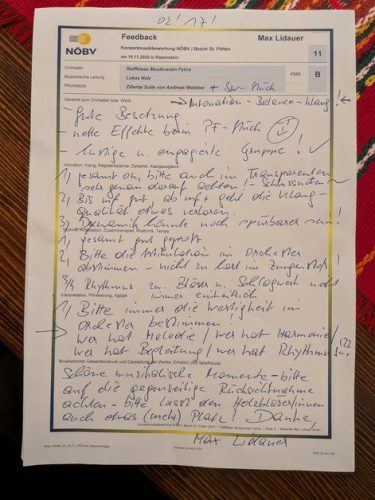 02'17"
NÖBV
Feedback
Max Lidauer
Konzertmusikbewertung NÖBV | Bezirk St. Pölten
am 16.11.2025 in Rabenstein
11
Orchester
Raiffeisen Musikverein Pyhra
Musikalische Leitung
Lukas
KMB
B
Pflichtstück
Zillertal Suite von Andreas Waldner + Sw-Stück
Generell zum Orchester bzw. Werk
Intonation - Balance - Klang!
- Gute Besetzung
- nette Effekte beim PF-Stück
- lustige u. engagierte Gruppe!
Intonation, Klang, Registerbalance, Dynamik, Klangausgleich
1) gesamt ok, bitte auch im Transparenten
sehr genau darauf achten! - Schlussnoten
2) Bis mf gut, ab mf+ geht die Klang-
Qualität etwas verloren.
3) Dynamik könnte noch spürbarer sein!
Technik, Artikulation, Zusammenspiel, Rhythmik, Tempo
1) gesamt gut geprobt
2) Bitte die Artikulation im Orchester
abstimmen - nicht zu hart im Zungenstoß!
3) Rhythmus zw. Bläser u. Schlagwerk nicht
immer einheitlich
Interpretation, Phrasierung, Agogik
1) Bitte immer die Wertigkeit im
Orchester bestimmen!
wer hat Melodie / wer hat Harmonie /
wer hat Begleitung / wer hat Rhythmus
Musikalischer Gesamteindruck und Darstellung der Werke, Emotion und Spielfreude
Schöne musikalische Momente - bitte
auf die gegenseitige Rücksichtnahme
achten - bitte lasst den Holzbläser/innen
auch etwas (mehr) Platz! Danke,
Max Lidauer